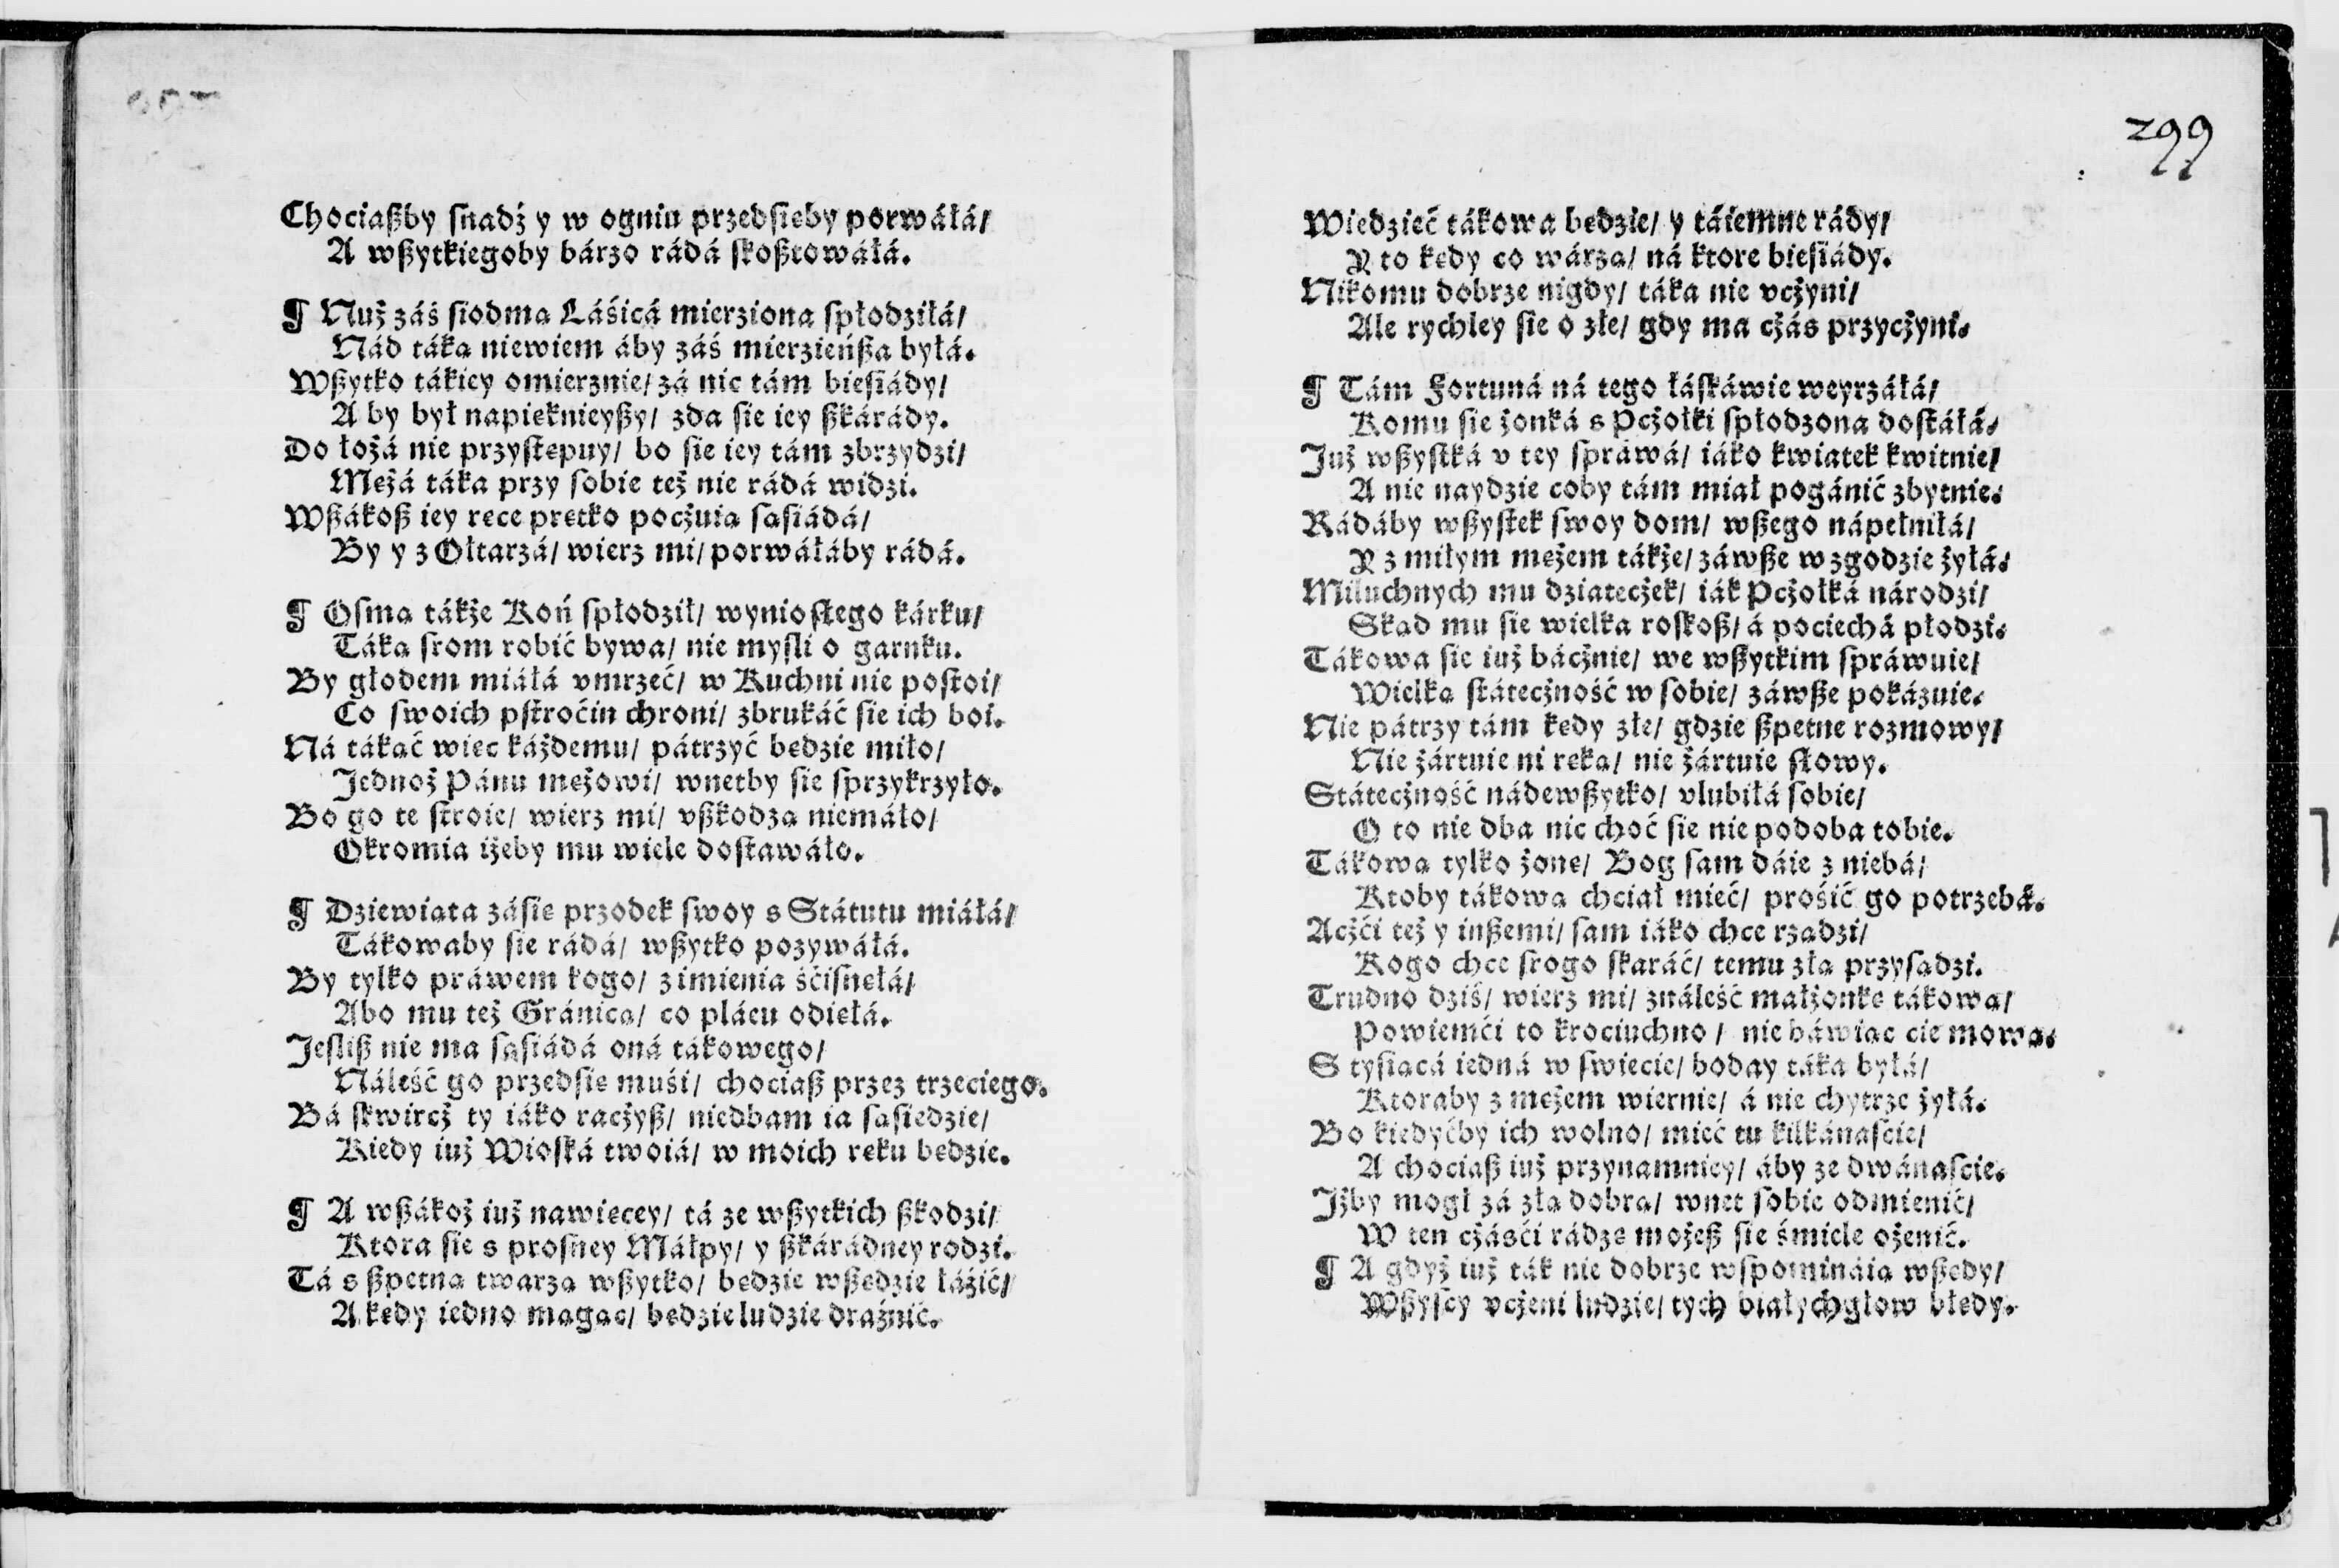 Chociaßby ſnadź y w ogniu przedſieby porwáłá/
A wßytkiegoby bárzo rádá ſkoßtowáłá.
¶ Nuż záś ſiodma Láśicá mierziona ſpłodziłá/
Nád táka niewiem áby záś mierzieńßa byłá.
Wßytko tákiey omierznie/ zá nic tám bieſiády/
A by był napieknieyßy/ zda ſie iey ßkárády.
Do łożá nie przyſtepuy/ bo ſie iey tám zbrzydzi/
Mężá táka przy ſobie też nie rádá widzi.
Wßákoß iey rece pretko poczuia ſaſiádá/
By y z Ołtarzá/ wierz mi/ porwáłáby rádá.
¶ Oſma tákże Koń ſpłodził/ wynioſłego kárku/
Táka ſrom robić bywa/ nie myſli o garnku.
By głodem miáłá vmrzeć/ w Kuchni nie poſtoi/
Co ſwoich pſtroćin chroni/ zbrukáć ſie ich boi.
Ná tákać wiec káżdemu/ pátrzyć bedzie miło/
Jednoż Pánu meżowi/ wnetby ſie ſprzykrzyło.
Bo go te ſtroie/ wierz mi/ vßkodza niemáło/
Okromia iżeby mu wiele doſtawáło.
¶ Dziewiata záſie przodek ſwoy s Státutu miáłá/
Tákowaby ſie rádá/ wßytko pozywáłá.
By tylko práwem kogo/ z imienia śćiſnełá/
Abo mu też Gránica/ co plácu odiełá.
Jeſliß nie ma ſaſiádá oná tákowego/
Náleść go przedſie muśi/ chociaß przez trzeciego.
Bá ſkwircż ty iáko racżyß/ niedbam ia ſaſiedzie/
Kiedy iuż Wioſká twoiá/ w moich reku bedzie.
¶ A wßákoż iuż nawiecey/ tá ze wßytkich ßkodzi/
Ktora ſie s proſney Máłpy/ y ßkárádney rodzi.
Tá s ßpetna twarza wßytko/ bedzie wßedzie łáźić/
A kedy iedno magac/ bedzie ludzie draźnić.
299
Wiedzieć tákowa bedzie/ y táiemne rády/
Y to kedy co wárza/ ná ktore bieſiády.
Nikomu dobrze nigdy/ táka nie vcżyni/
Ale rychley ſie o złe/ gdy ma cżás przycżyni.
¶ Tám Fortuná ná tego łáſkáwie weyrzáłá/
Komu ſie żonká s Pcżołki ſpłodzona doſtáłá.
Już wßyſtká v tey ſpráwá/ iáko kwiatek kwitnie/
A nie naydzie coby tám miał pogánić zbytnie.
Rádáby wßyſtek ſwoy dom/ wßego nápełniłá/
Y z miłym meżem tákże/ záwße w zgodzie żyłá.
Miluchnych mu dziatecżek/ iák Pcżołká národzi/
Skad mu ſie wielka roſkoß/ á pociechá płodzi.
Tákowa ſie iuż bácżnie/ we wßytkim ſpráwuie/
Wielka ſtátecżność w ſobie/ záwße pokázuie.
Nie pátrzy tám kedy złe/ gdzie ßpetne rozmowy/
Nie żártuie ni reka/ nie żártuie ſłowy.
Státecżność nádewßytko/ vlubiłá ſobie/
O to nie dba nic choć ſie nie podoba tobie.
Tákowa tylko żone/ Bog ſam dáie z niebá/
Ktoby tákowa chciał mieć/ prośić go potrzebá.
Acżći też y inßemi/ ſam iáko chce rzadzi/
Kogo chce ſrogo ſkaráć/ temu zła przyſadzi.
Trudno dziś/ wierz mi/ználeść małżonke tákowa/
Powiemći to krociuchno/ nie báwiac cie mowa.
S tyſiacá iedná w ſwiecie/ boday táka byłá/
Ktoraby z meżem wiernie/ á nie chytrze żyłá.
Bo kiedyćby ich wolno/ mieć tu kilkánaſcie/
A chociaß iuż przynamniey/ áby ze dwánaſcie.
Jżby mogł zá zła dobra/ wnet ſobie odmienić/
W ten cżásći rádze możeß ſie śmiele ożenić.
¶ A gdyż iuż ták nie dobrze wſpomináia wßedy/
Wßyſcy vcżeni ludzie/ tych białychgłow błedy.